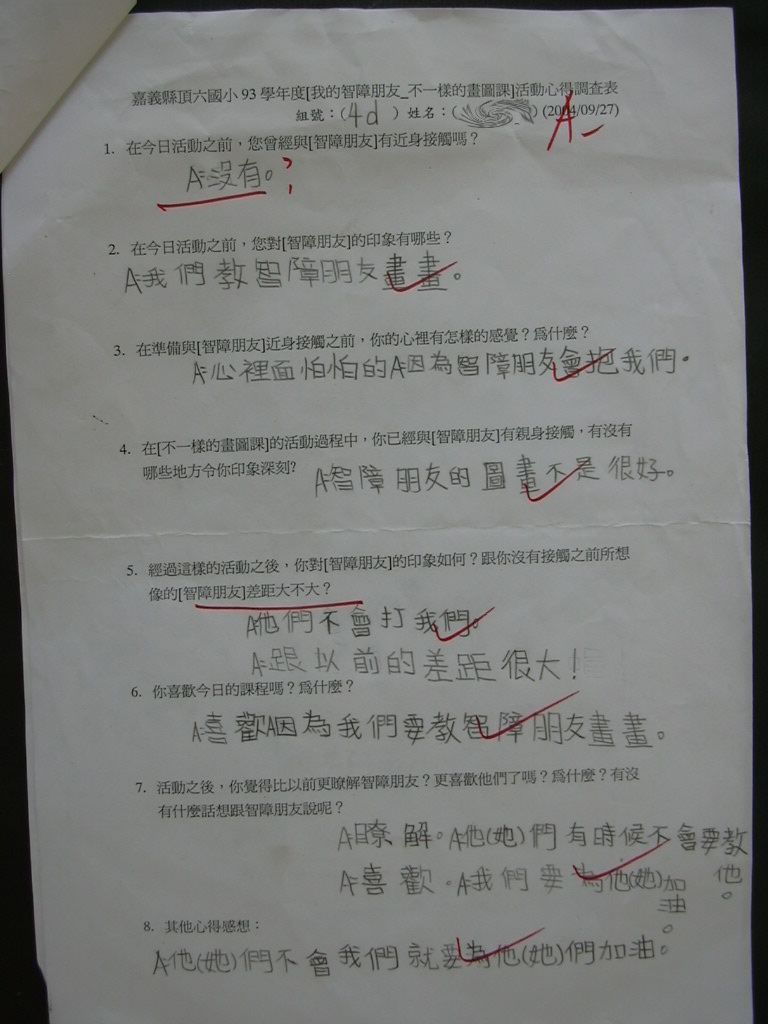 嘉義縣頂六國小93學年度[我的智障朋友_不一樣的畫圖課]活動心得調查表
組號：(4d) 姓名：( ) (2004/09/27)
A-
1. 在今日活動之前，您曾經與[智障朋友]有近身接觸嗎？
A:沒有。?
2. 在今日活動之前，您對[智障朋友]的印象有哪些？
A:我們教智障朋友畫畫。
3. 在準備與[智障朋友]近身接觸之前，你的心裡有怎樣的感覺？為什麼？
A:心裡面怕怕的A:因為智障朋友會抱我們。
4. 在[不一樣的畫圖課]的活動過程中，你已經與[智障朋友]有親身接觸，有沒有
哪些地方令你印象深刻?
A:智障朋友的圖畫不是很好。
5. 經過這樣的活動之後，你對[智障朋友]的印象如何？跟你沒有接觸之前所想
像的[智障朋友]差距大不大？
A:他們不會打我們。
A:跟以前的差距很大！
6. 你喜歡今日的課程嗎？為什麼？
A:喜歡A:因為我們要教智障朋友畫畫。
7. 活動之後，你覺得比以前更瞭解智障朋友？更喜歡他們了嗎？為什麼？有沒
有什麼話想跟智障朋友說呢？
A:瞭解。A:他(她)們有時候不會要教他。
A:喜歡。A:我們要為他(她)加油。
8. 其他心得感想：
A:他(她)們不會我們就要為他(她)們加油。